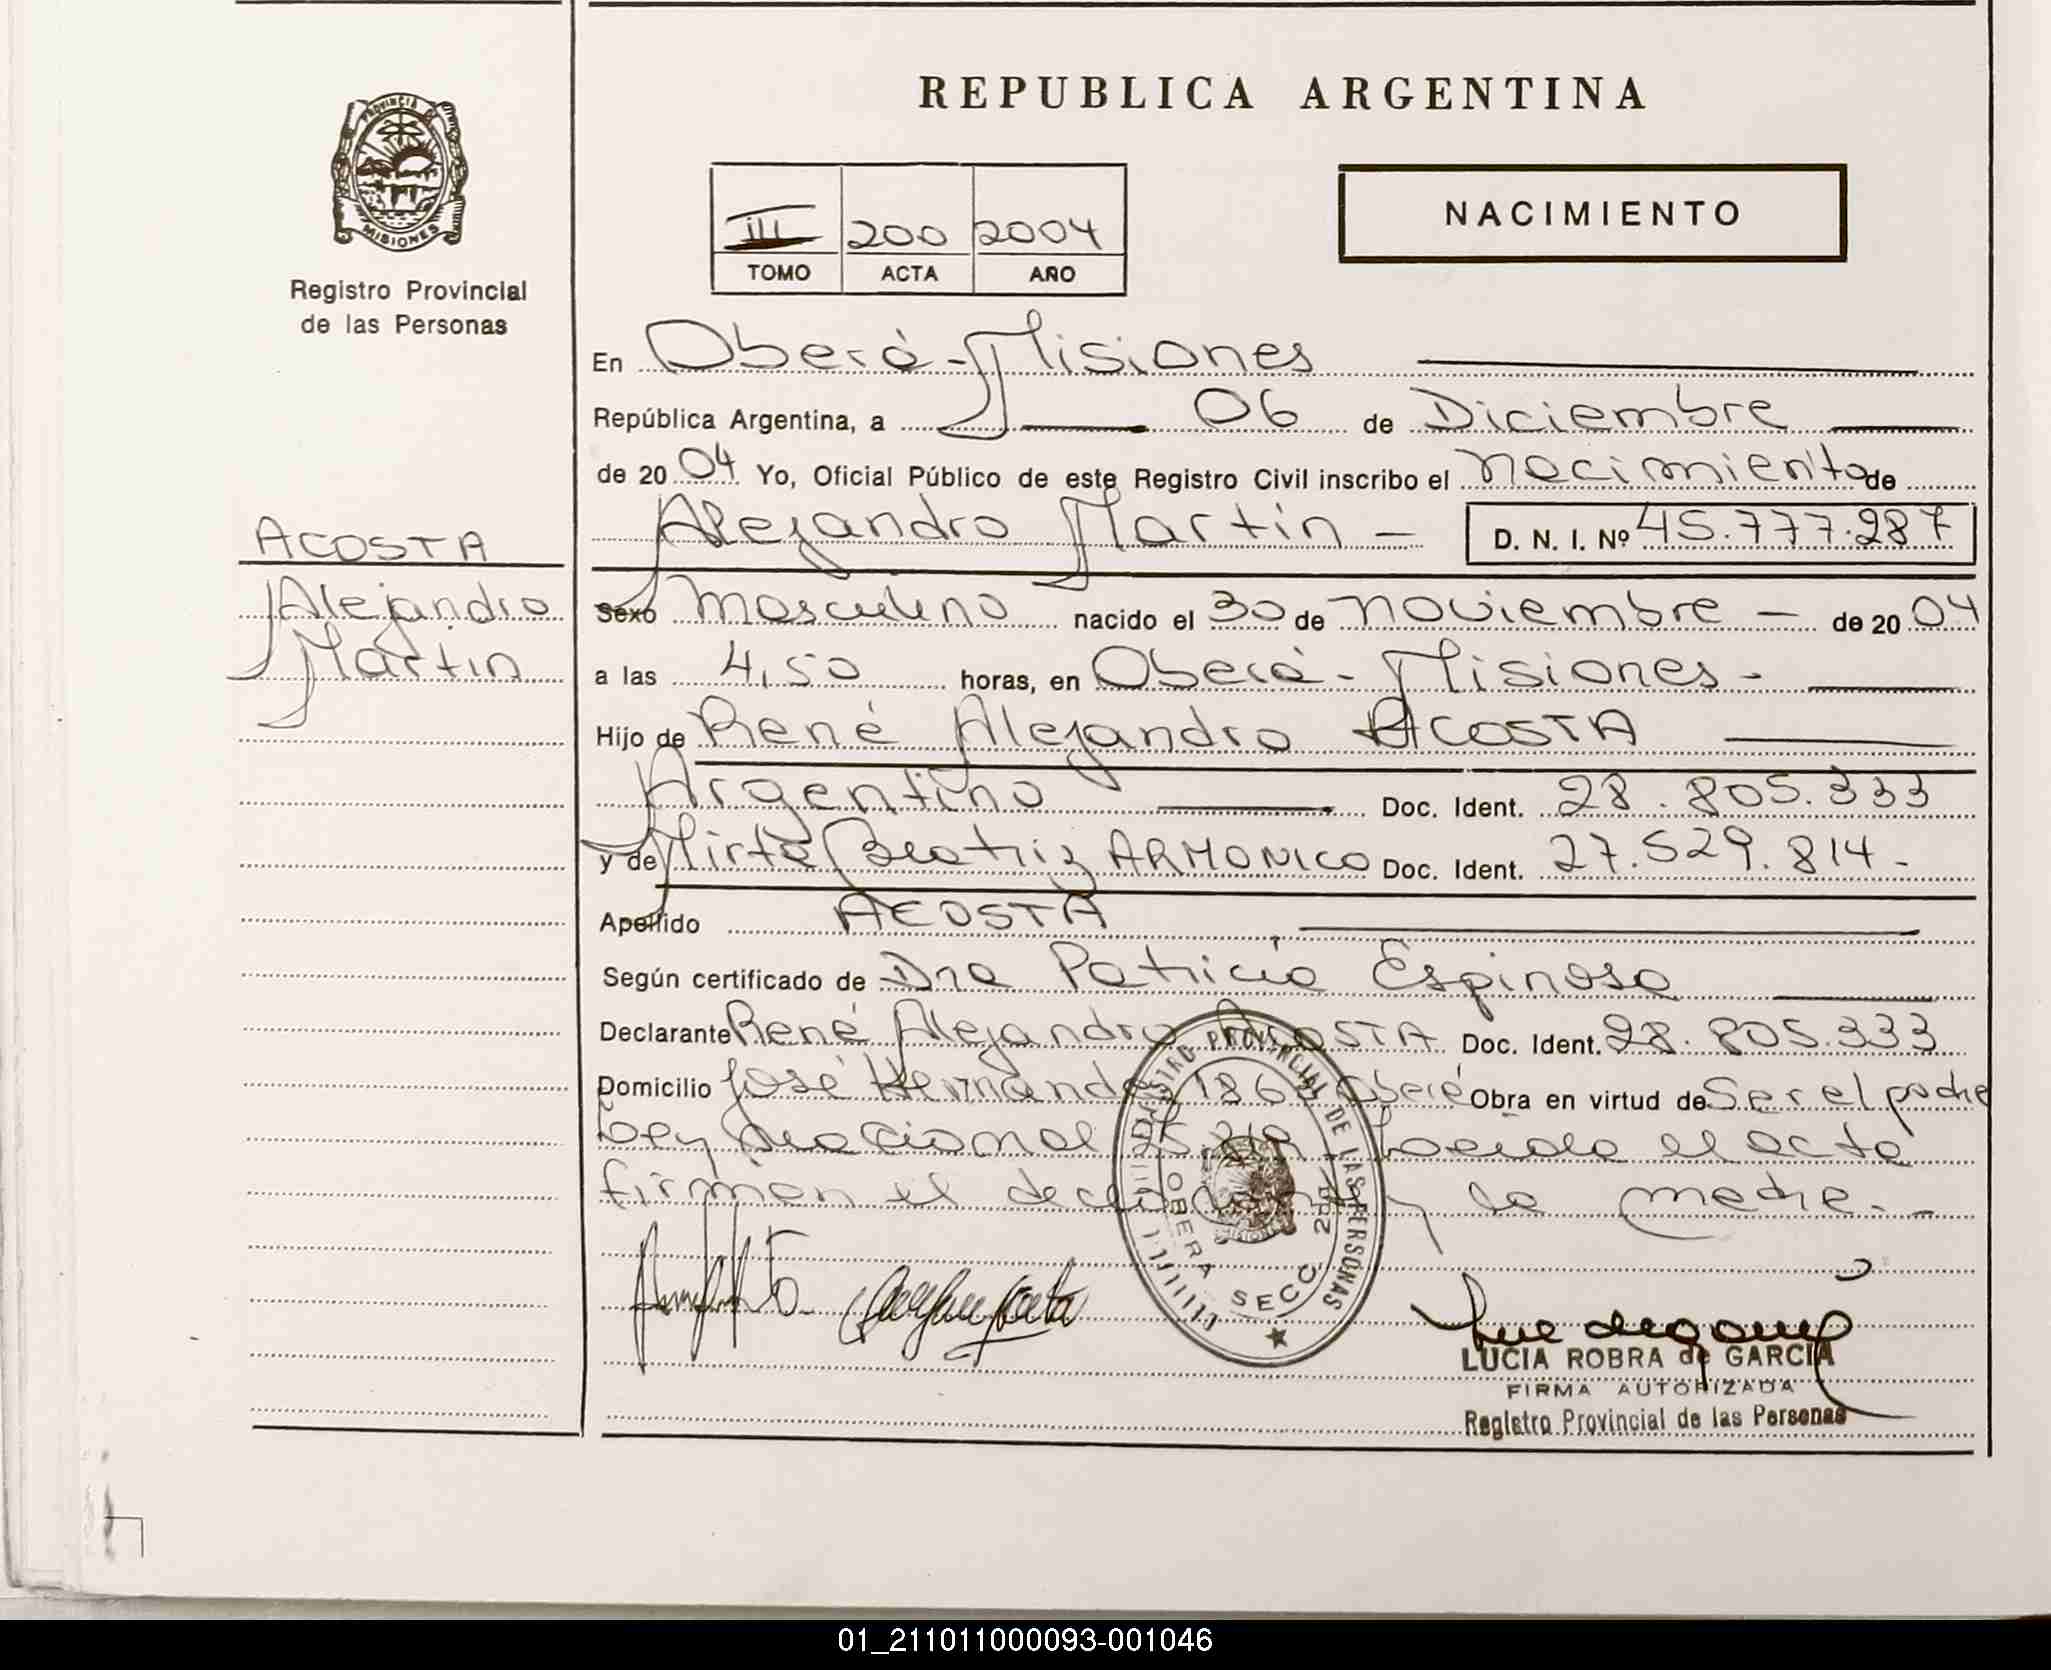 REPUBLICA ARGENTINA
PROVINCIA DE
MISIONES
Registro Provincial
de las Personas
III 200 2004
TOMO ACTA AÑO
NACIMIENTO
En Oberá - Misiones
República Argentina, a 06 de Diciembre
de 2004 Yo, Oficial Público de este Registro Civil inscribo el nacimiento de
Alejandro Martin - D. N. I. Nº 45.777.287
ACOSTA
Alejandro
Martin
Sexo masculino nacido el 30 de noviembre - de 2004
a las 4,50 horas, en Oberá - Misiones -
Hijo de René Alejandro ACOSTA
Argentino Doc. Ident. 28.805.333
y de Mirta Beatriz ARMONICO Doc. Ident. 27.529.814-
Apellido ACOSTA
Según certificado de Dra Patricia Espinosa
Declarante René Alejandro ACOSTA Doc. Ident. 28.805.333
Domicilio José Hernandez Oberá Obra en virtud de Ser el padre
Ley Nacional Leída el acta
firman el declarante y la madre.-
REGISTRO PROVINCIAL DE LAS PERSONAS
OBERA SECC. 2da
LUCIA ROBRA de GARCIA
FIRMA AUTORIZADA
Registro Provincial de las Personas
01_211011000093-001046